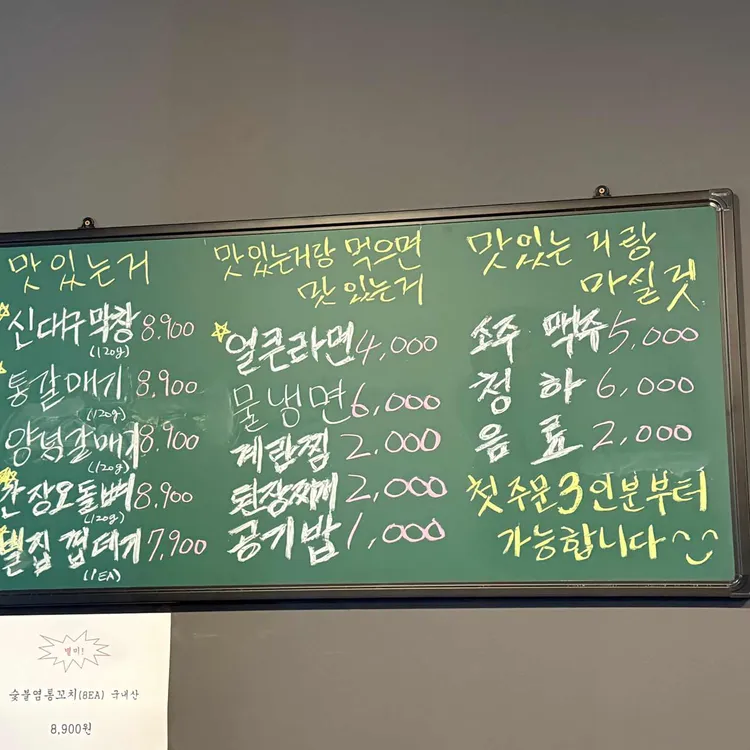 맛있는거
신대구막창 8,900
(120g)
통갈매기 8,900
(120g)
양념갈매기 8,900
(120g)
간장오돌뼈 8,900
(120g)
벌집껍데기 7,900
(1EA)
맛있는거랑 먹으면
맛있는거
얼큰라면 4,000
물냉면 6,000
계란찜 2,000
된장찌개 2,000
공기밥 1,000
맛있는거랑
마실것
소주 맥주 5,000
청하 6,000
음료 2,000
첫주문 3인분부터
가능합니다^^
별미!
숯불염통꼬치(8EA) 국내산
8,900원